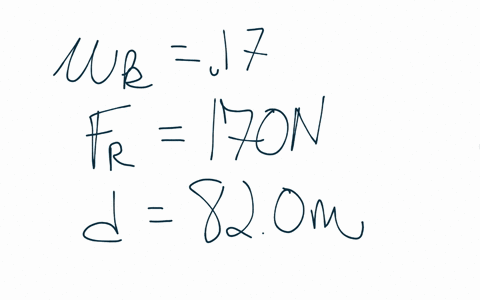 μ_k = .17
F_R = 170N
d = 82.0m